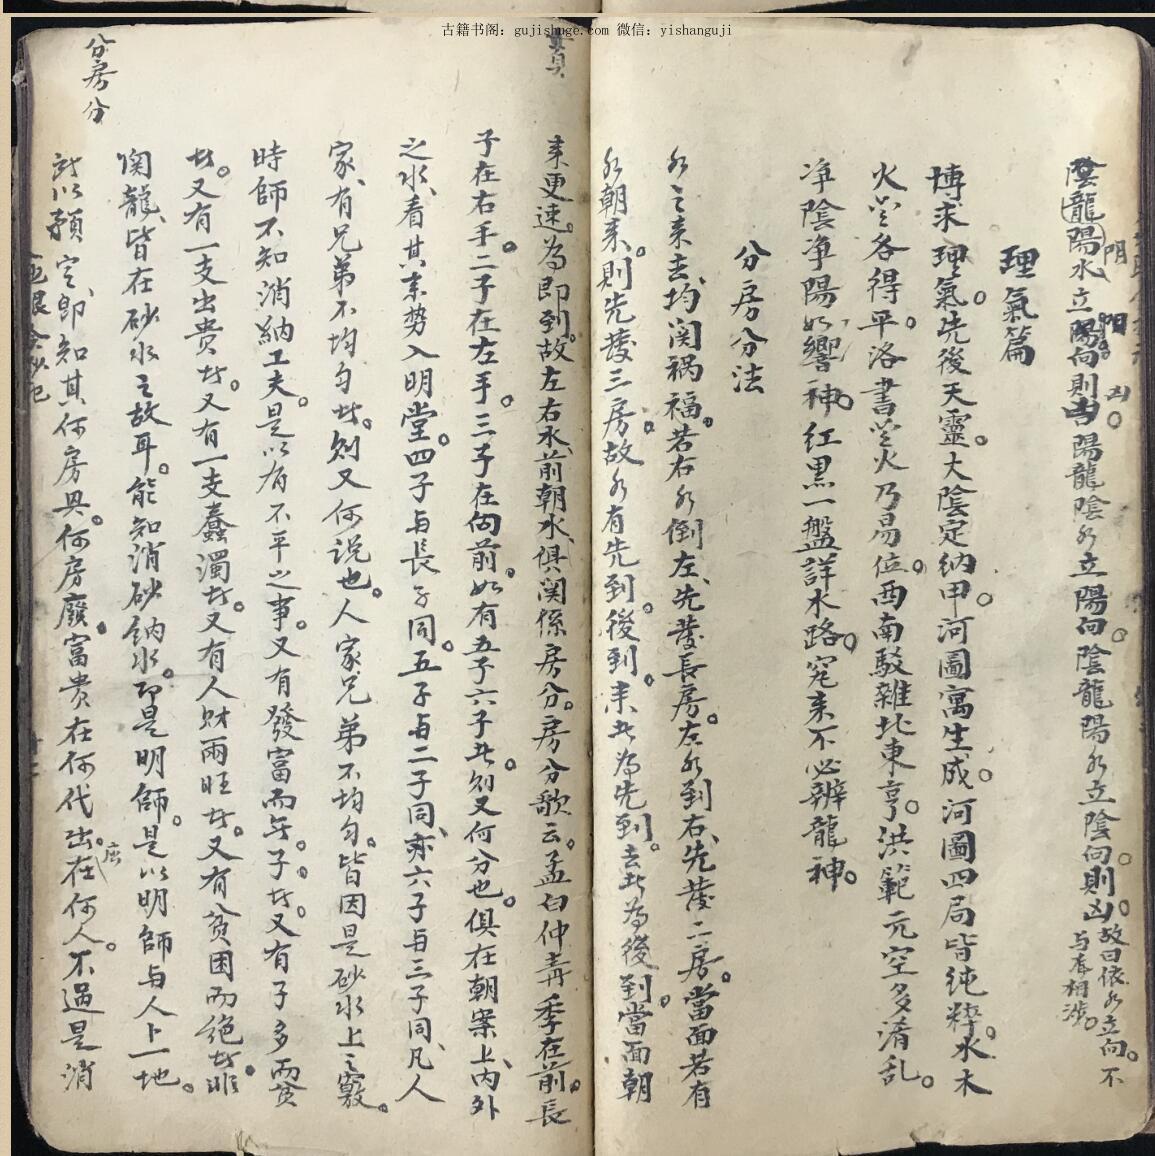 古籍书阁：gujishuge.com 微信：yishanguji
陰龍陽水立陽向則吉陽龍陰水立陽向。陰龍陽水立陰向。則凶。故曰依水立向。不
与本相涉。
阴
阳
凶
理氣篇
博求理氣。先後天靈。大陰定納甲。河圖寓生成。河圖四局皆純粹。水木
火各得平。洛書火乃易位。西南駁雜北東亨。洪範元空多淆乱。
净陰净陽如響神。红黒一盤詳水路。究来不必辨龍神。
分房分法
水之来去、均関祸福。若右水倒左、先發長房。左水到右、先發二房。當面若有
水朝来、則先發三房。故水有先到。後到。来者為先到。去者為後到。當面朝
来更速。為即到。故左右水、前朝水、俱関係房分。房分歌云。孟白仲青季在前。長
子在右手。二子在左手。三子在向前。如有五子六子者。则又何分也。俱在朝案上、内外
之水、看其来势入明堂。四子与長子同。五子与二子同、六子与三子同、凡人
家、有兄弟不均匀者。则又何说也。人家兄弟不均匀。皆因是砂水上之竅。
時師不知消納工夫。是以有不平之事。又有發富而子。者。又有子多而贫
者。又有一支出贵者。又有一支蠢濁者。又有人财兩旺者。又有贫困而绝者。非
関龍、皆在砂水之故耳。能知消砂納水。即是明師。是以明師与人卜一地。
所以預定、即知其何房兴。何房廢。富贵在何代出。在何人。不過是消
分房分